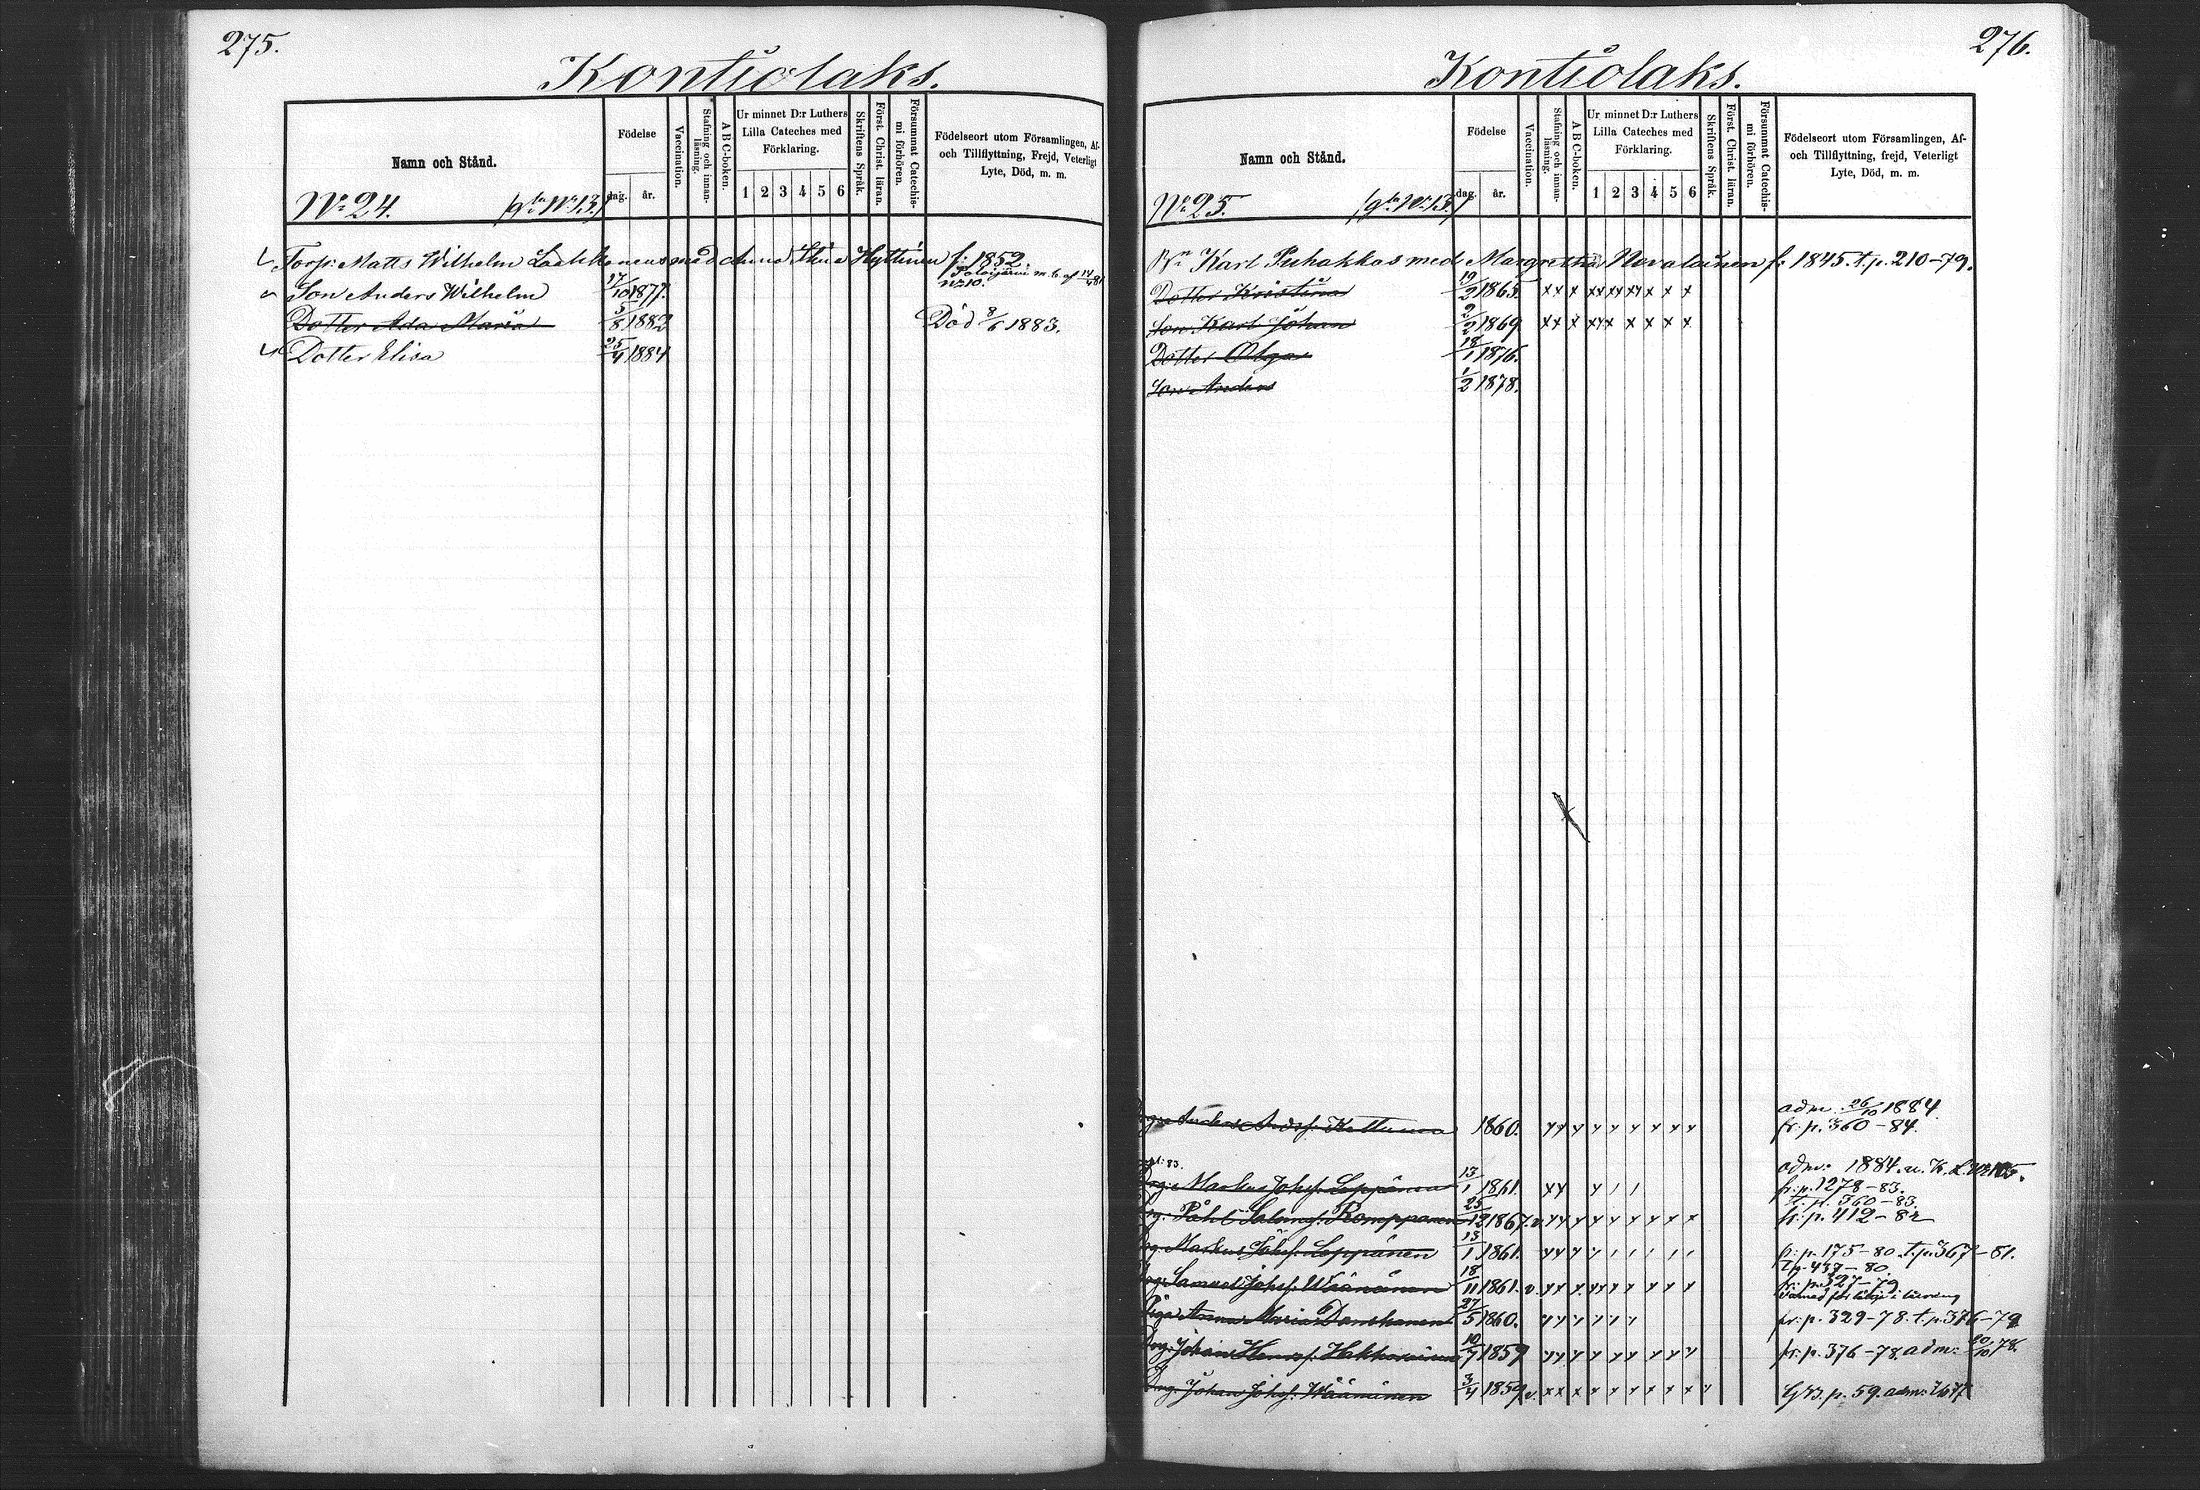 275.
Kontiolaks.
Namn och Stånd.
Födelse
dag. år.
Vaccination.
Stafning och innan-läsning.
A B C-boken.
Ur minnet D:r Luthers
Lilla Cateches med
Förklaring.
1 2 3 4 5 6
Skriftens Språk.
Först. Christ. läran.
Försummat Catechis-mi förhören.
Födelseort utom Församlingen, Af-
och Tillflyttning, Frejd, Veterligt
Lyte, Död, m. m.
No 24. No 13.
Torp: Matts Wilhelm Laakkonens med Anna Stina Hyttinen f: 1852.
Polvijärvi m. b. af 14/4 81
No 10.
Son Anders Wilhelm 17/10 1877.
Dotter Ada Maria 5/8 1882 Död 8/6 1883.
Dotter Elisa 25/4 1884
276.
Kontiolaks.
Namn och Stånd.
Födelse
dag. år.
Vaccination.
Stafning och innan-läsning.
A B C-boken.
Ur minnet D:r Luthers
Lilla Cateches med
Förklaring.
1 2 3 4 5 6
Skriftens Språk.
Först. Christ. läran.
Försummat Catechis-mi förhören.
Födelseort utom Församlingen, Af-
och Tillflyttning, frejd, Veterligt
Lyte, Död, m. m.
No 25. No 13.
Karl Puhakkas med Margretha Novalainen f: 1845. t.p. 210-79.
Dotter Kristina 19/2 1865. xx x xx xx xx x x x
Son Karl Johan 2/2 1869 xx x xx x x x x x
Dotter Olga 18/1 1876.
Son Anders 1/2 1878.
adm. 26/10 1884
Anders Andsf. Kettunen 1860. fr. p. 360-84.
adm: 1884.
Markus Johsf. Leppänen 13/1 1861 fr. p. 1278-83.
t. p. 360-83.
Påhl Salomsf. Romppanen 25/12 1867. v. fr. p. 412-82
Markus Johsf. Leppänen 13/1 1861. fr. p. 175-80. t. p. 367-81.
t. p. 437-80.
Samuel Johsf. Wäänänen 18/11 1861. v. fr. p. 327-79
Piga Anna Maria Danskanen 27/5 1860. fr. p. 329-78. t. p. 376-79
Johan Henrsf. Hakkarainen 10/7 1859 fr. p. 376-78. adm: 20/10 78.
Johan Johsf. Wäänänen 3/4 1859 v. p. 59.